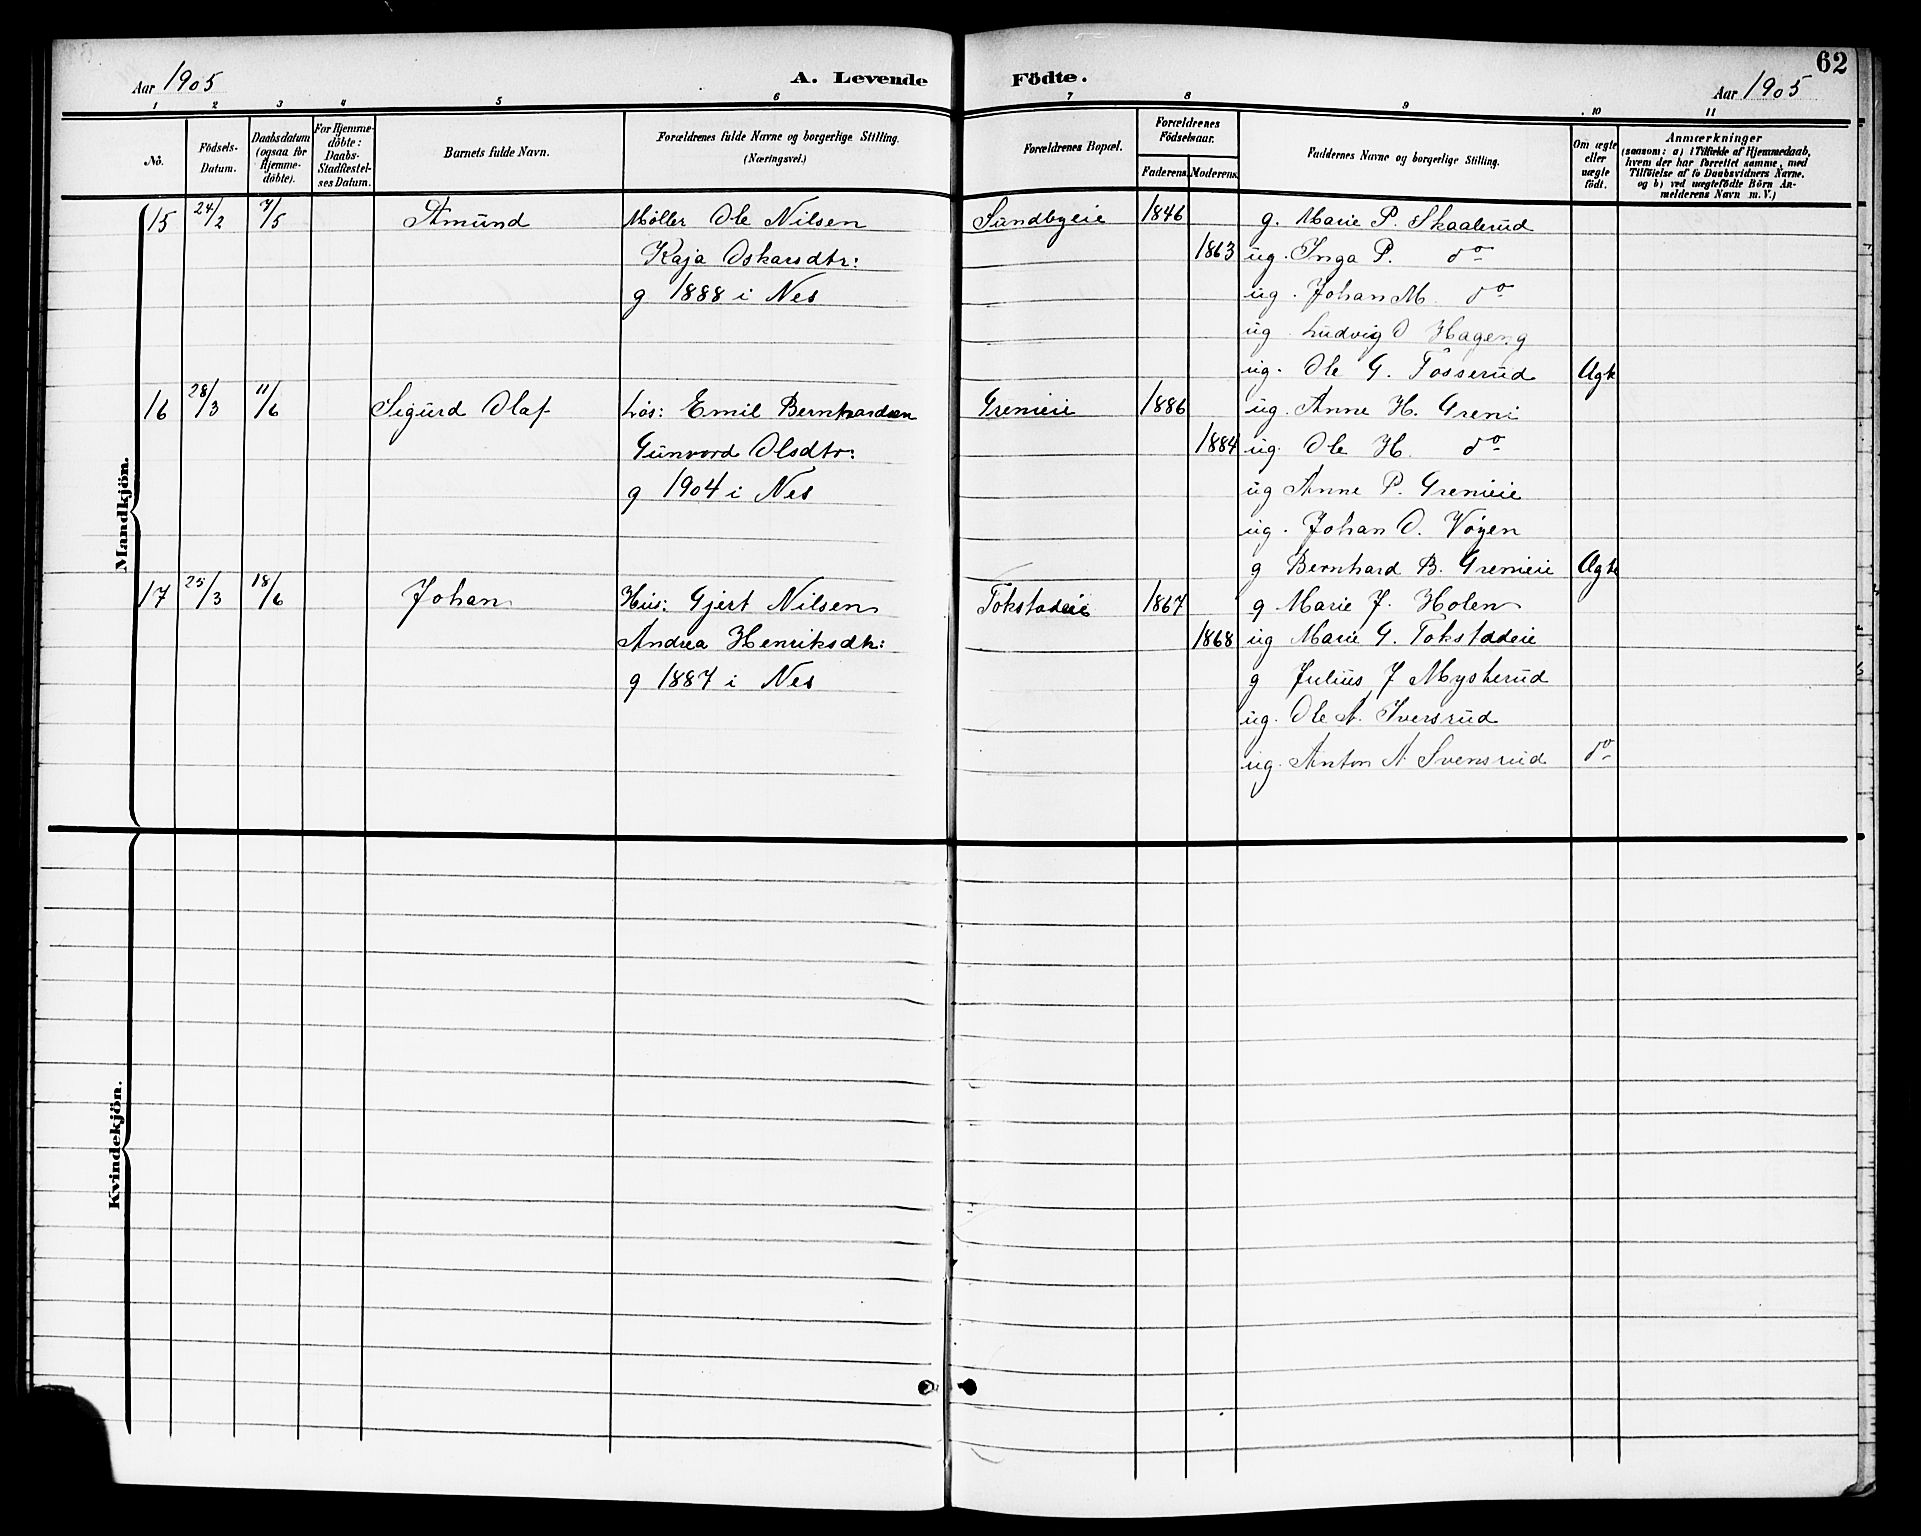 62
Aar 1905
A. Levende Födte.
Aar 1905
1 2 3 4 5 6 7 8 9 10 11
No.
Födsels-Datum.
Daabsdatum (ogsaa for Hjemme-döbte).
For Hjemme-döbte: Daabs-Stadfæstel-ses Datum.
Barnets fulde Navn.
Forældrenes fulde Navne og borgerlige Stilling.
(Næringsvei.)
Forældrenes Bopæl.
Forældrenes Födselsaar.
Faderens. Moderens.
Faddernes Navne og borgerlige Stilling.
Om ægte eller uægte födt.
Anmærkninger
(saasom: a) i Tilfælde af Hjemmedaab, hvem der har forrettet samme, med Tilföielse af to Daabsvidners Navne. og b) ved uægtefödte Börn An-melderens Navn m. V.)
Mandkjön.
15 24/2 7/5 Amund Møller Ole Nilsen Sundbyeie 1846 g. Marie P. Skaalerud
Kaja Oskarsdtr: 1863 ug. Inga P. do
g 1888 i Nes ug. Johan M. do
ug. Ludvig O Hageng
ug. Ole G. Tosserud Ægte
16 28/3 11/6 Sigurd Olaf Løs: Emil Bernhardsen Grenieie 1886 ug. Anne H. Greni
Gunvord Olsdtr: 1884 ug. Ole H. do
g 1904 i Nes ug Anne P. Grenieie
ug. Johan O. Vøyen
g Bernhard B. Grenieie Ægte
17 25/3 18/6 Johan Hus: Gjert Nilsen Tokstadeie 1867 g Marie J. Holen
Andrea Henriksdtr: 1868 ug Marie G. Tokstadeie
g 1887 i Nes g Julius J Mysterud
ug. Ole A. Iversrud
ug. Anton A Svensrud do
Kvindekjön.